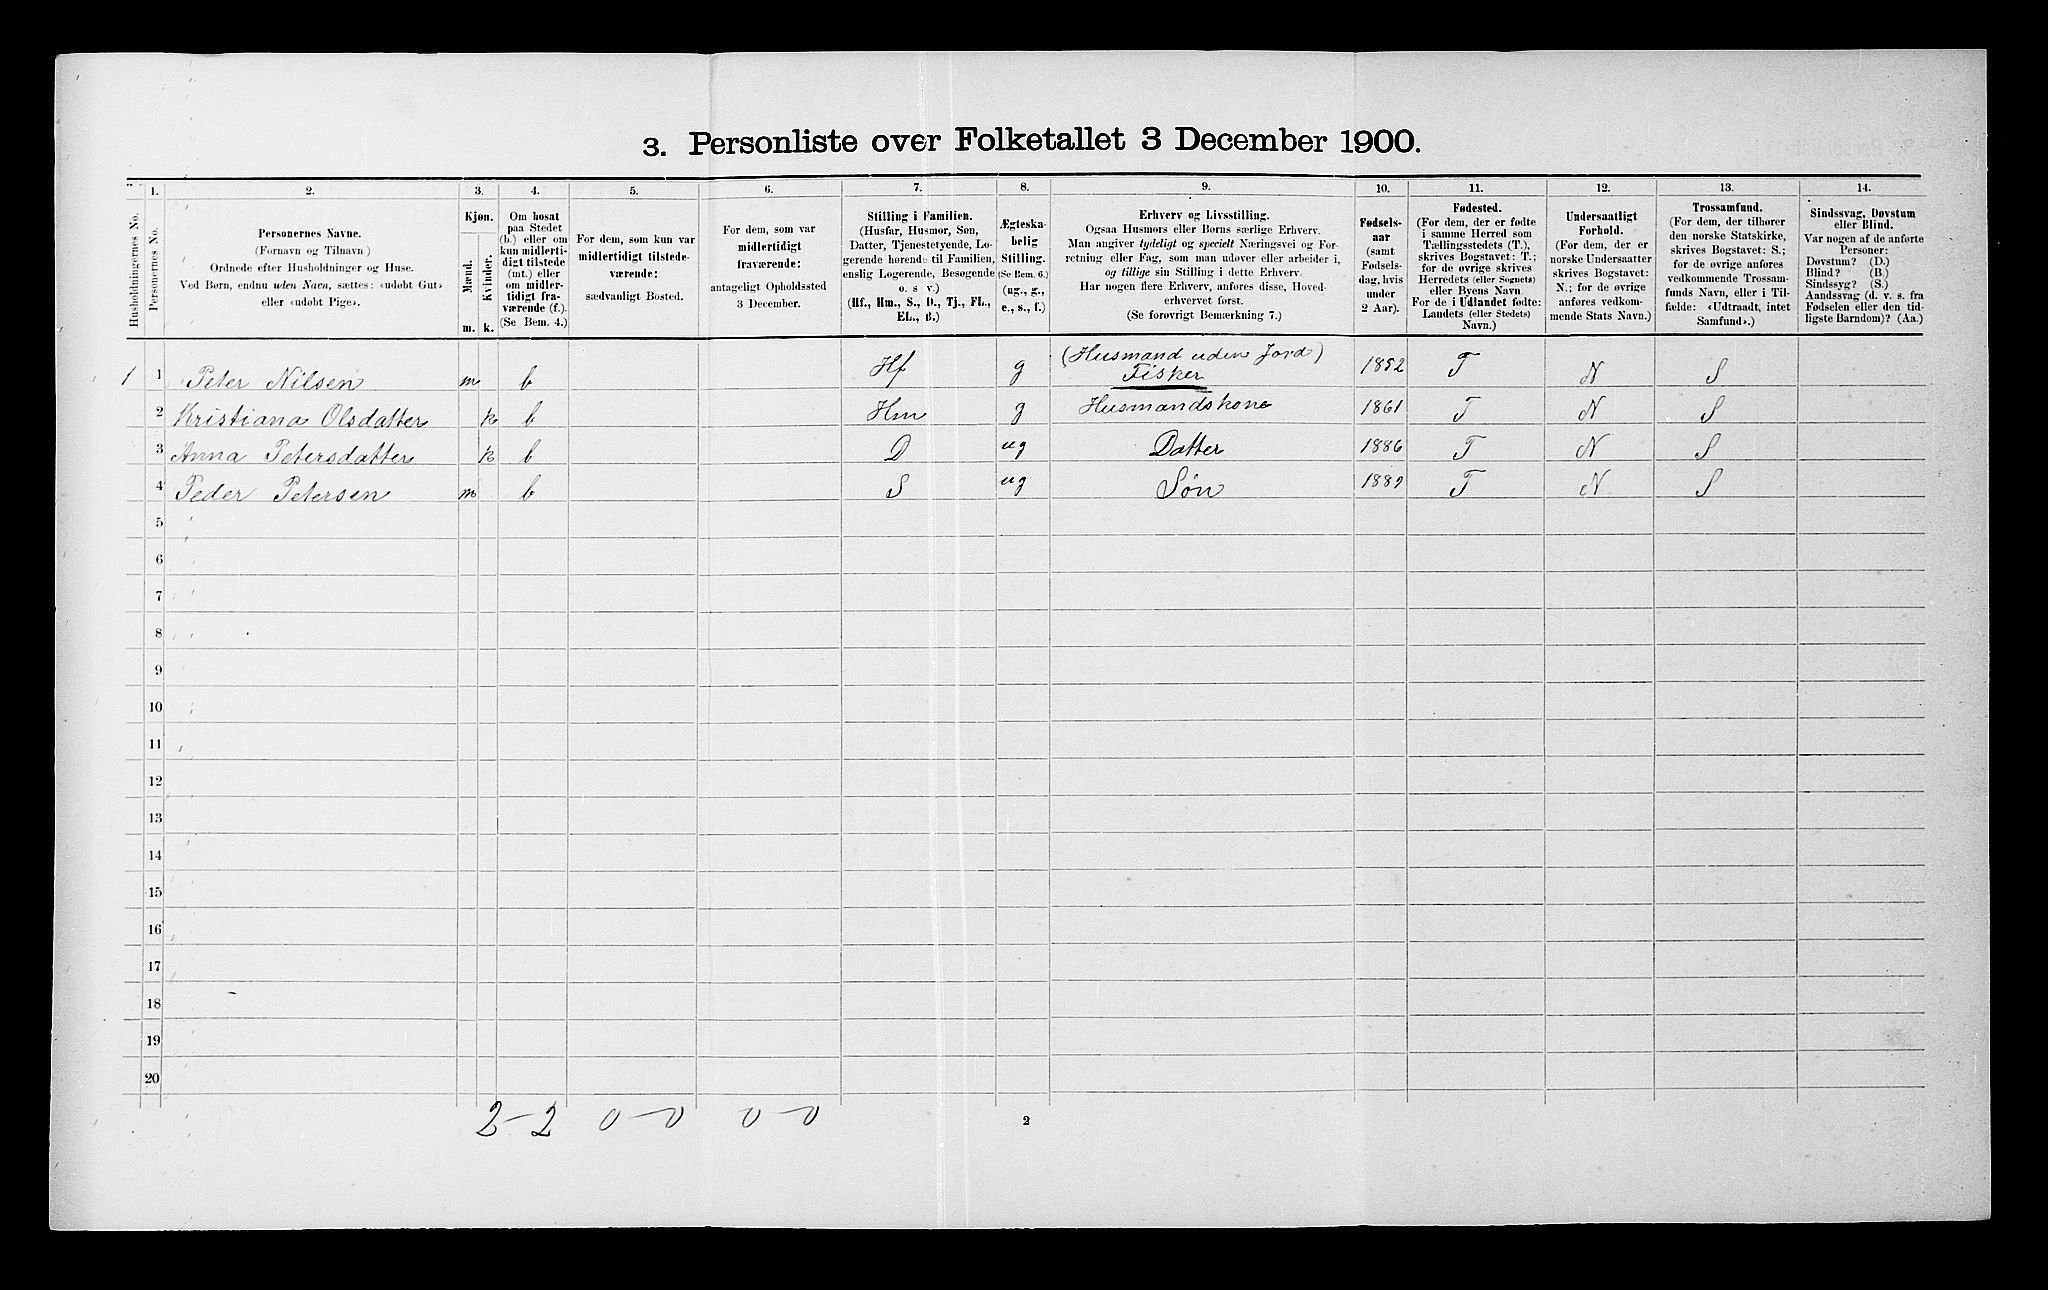 3. Personliste over Folketallet 3 December 1900.
1. 2. 3. 4. 5. 6. 7. 8. 9. 10. 11. 12. 13. 14.
Husholdningernes No.
Personernes No.
Personernes Navne.
(Fornavn og Tilnavn)
Ordnede efter Husholdninger og Huse.
Ved Børn, endnu uden Navn, sættes: «udøbt Gut»
eller «udøbt Pige».
Kjøn.
Mænd.
Kvinder.
m. k.
Om bosat
paa Stedet
(b.) eller om
kun midlerti-
digt tilstede
(mt.) eller
om midler-
tidigt fra-
værende (f.).
(Se Bem. 4.)
For dem, som kun var
midlertidigt tilstede-
værende:
sædvanligt Bosted.
For dem, som var
midlertidigt
fraværende:
antageligt Opholdssted
3 December.
Stilling i Familien.
(Husfar, Husmor, Søn,
Datter, Tjenestetyende, Lo-
gerende hørende til Familien,
enslig Logerende, Besøgende
o. s v.)
(Hf., Hm., S., D., Tj., FL.,
EL., B.)
Ægteska-
belig
Stilling.
(Se Bem. 6.)
(ug., g.,
e., s., f.)
Erhverv og Livsstilling.
Ogsaa Husmors eller Børns særlige Erhverv.
Man angiver tydeligt og specielt Næringsvei og For-
retning eller Fag, som man udøver eller arbeider i,
og tillige sin Stilling i dette Erhverv.
Har nogen flere Erhverv, anføres disse, Hoved-
erhvervet først.
(Se forøvrigt Bemærkning 7.)
Fødsels-
aar
(samt
Fødsels-
dag, hvis
under
2 Aar).
Fødested.
(For dem, der er fødte
i samme Herred som
Tællingsstedets (T.),
skrives Bogstavet: T.;
for de øvrige skrives
Herredets (eller Sognets)
eller Byens Navn
For de i Udlandet fødte:
Landets (eller Stedets)
Navn.)
Undersaatligt
Forhold.
(For dem, der er
norske Undersaatter
skrives Bogstavet:
N.; for de øvrige
anføres vedkom-
mende Stats Navn.)
Trossamfund.
(For dem, der tilhører
den norske Statskirke,
skrives Bogstavet: S.;
for de øvrige anføres
vedkommende Trossam-
funds Navn, eller i Til-
fælde: «Udtraadt, intet
Samfund».)
Sindssvag, Døvstum
eller Blind.
Var nogen af de anførte
Personer:
Døvstum? (D.)
Blind? (B.)
Sindssyg? (S.)
Aandssvag (d. v. s. fra
Fødselen eller den tid-
ligste Barndom)? (Aa.)
1 1 Peter Nilsen m b Hf g (Husmand uden Jord) 1852 T N S
Fisker
2 Kristiana Olsdatter k b Hm g Husmandskone 1861 T N S
3 Anna Petersdatter k b D ug Datter 1886 T N S
4 Peder Petersen m b S ug Søn 1889 T N S
5
6
7
8
9
10
11
12
13
14
15
16
17
18
19
20
2 - 2 0 - 0 0 - 0
2